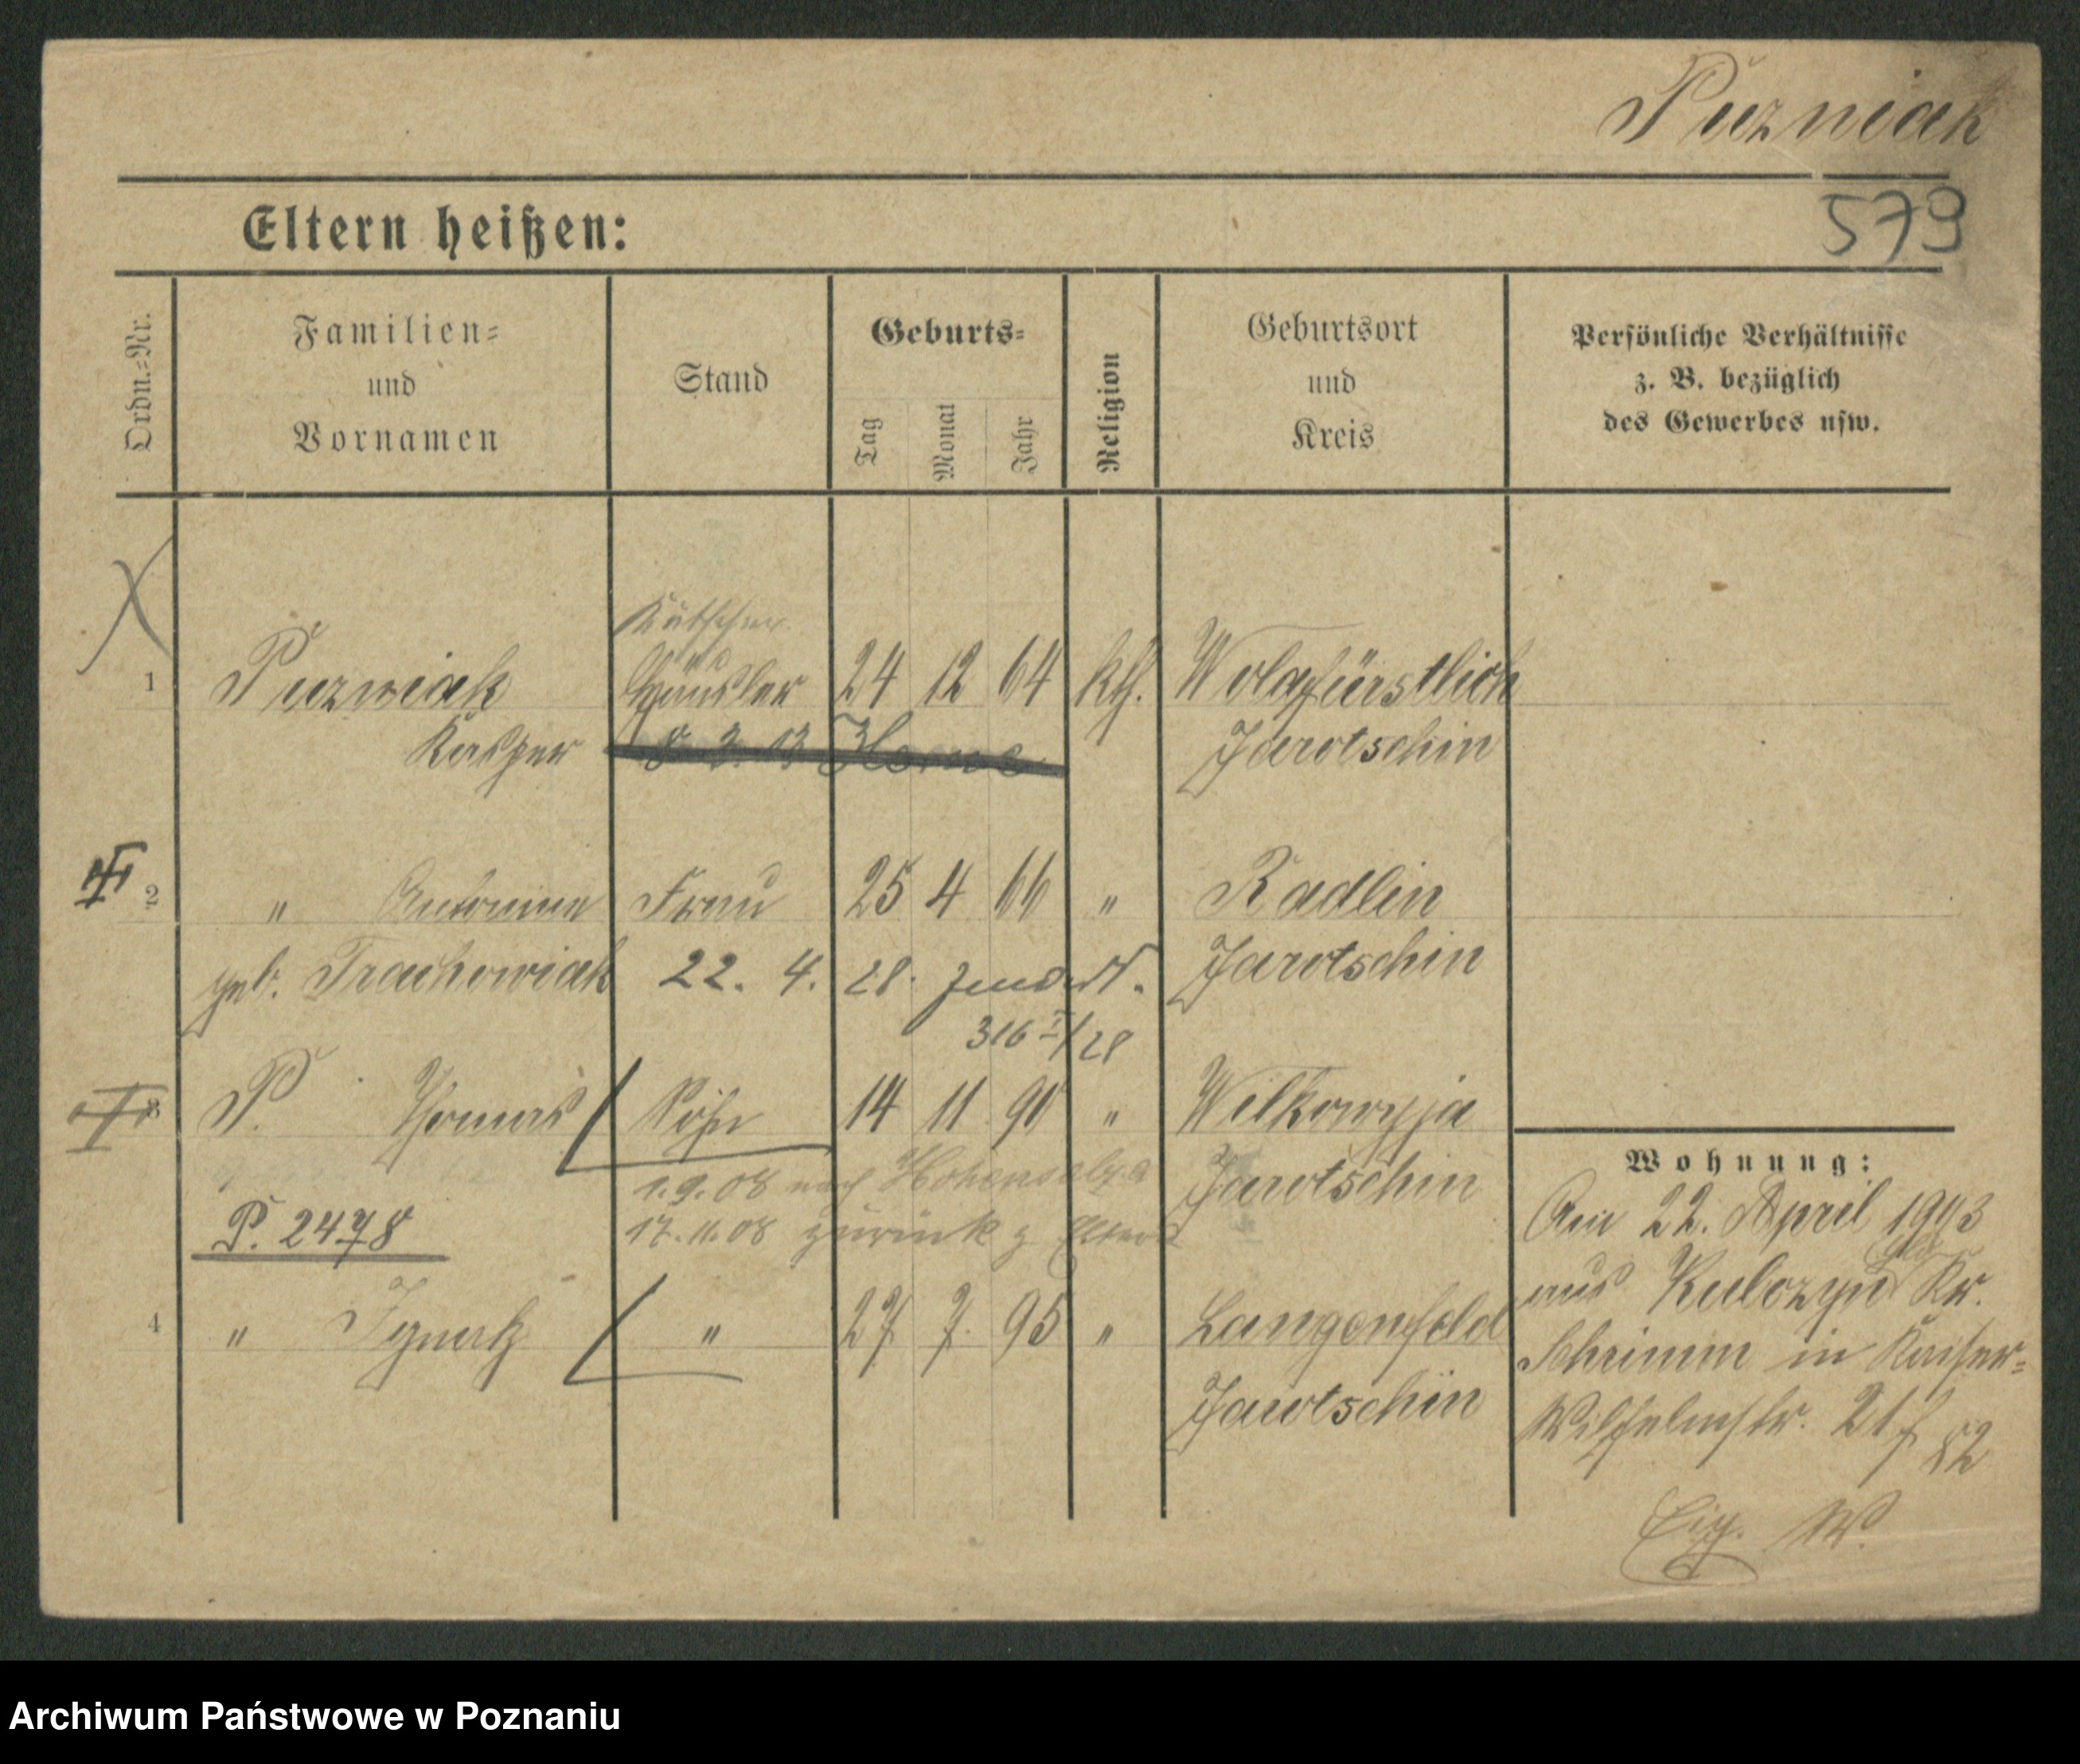 Puzniak
579
Eltern heißen:
Ordn.-Nr.
Familien-
und
Vornamen
Stand
Geburts-
Tag
Monat
Jahr
Religion
Geburtsort
und
Kreis
Persönliche Verhältnisse
z. B. bezüglich
des Gewerbes usw.
Kutscher
1 Puzniak Häusler 24 12 64 kth. Wolafürstlich
Kasper Jarotschin
2 " Antonina Frau 25 4 66 " Radlin
geb. Trachowiak 22. 4. 28. Jarotschin
316 I/28
3 P. Thomas Sohn 14 11 90 " Wilkowyja
Jarotschin
1.9.08 nach Hohensalza
17.11.08 zurück z Eltern
P. 2478
4 " Ignatz " 27 7. 95 " Langenfeld
Jarotschin
Wohnung:
Am 22. April 1903
aus Kr.
Schrimm in Kaiser-
Wilhelmstr. 21